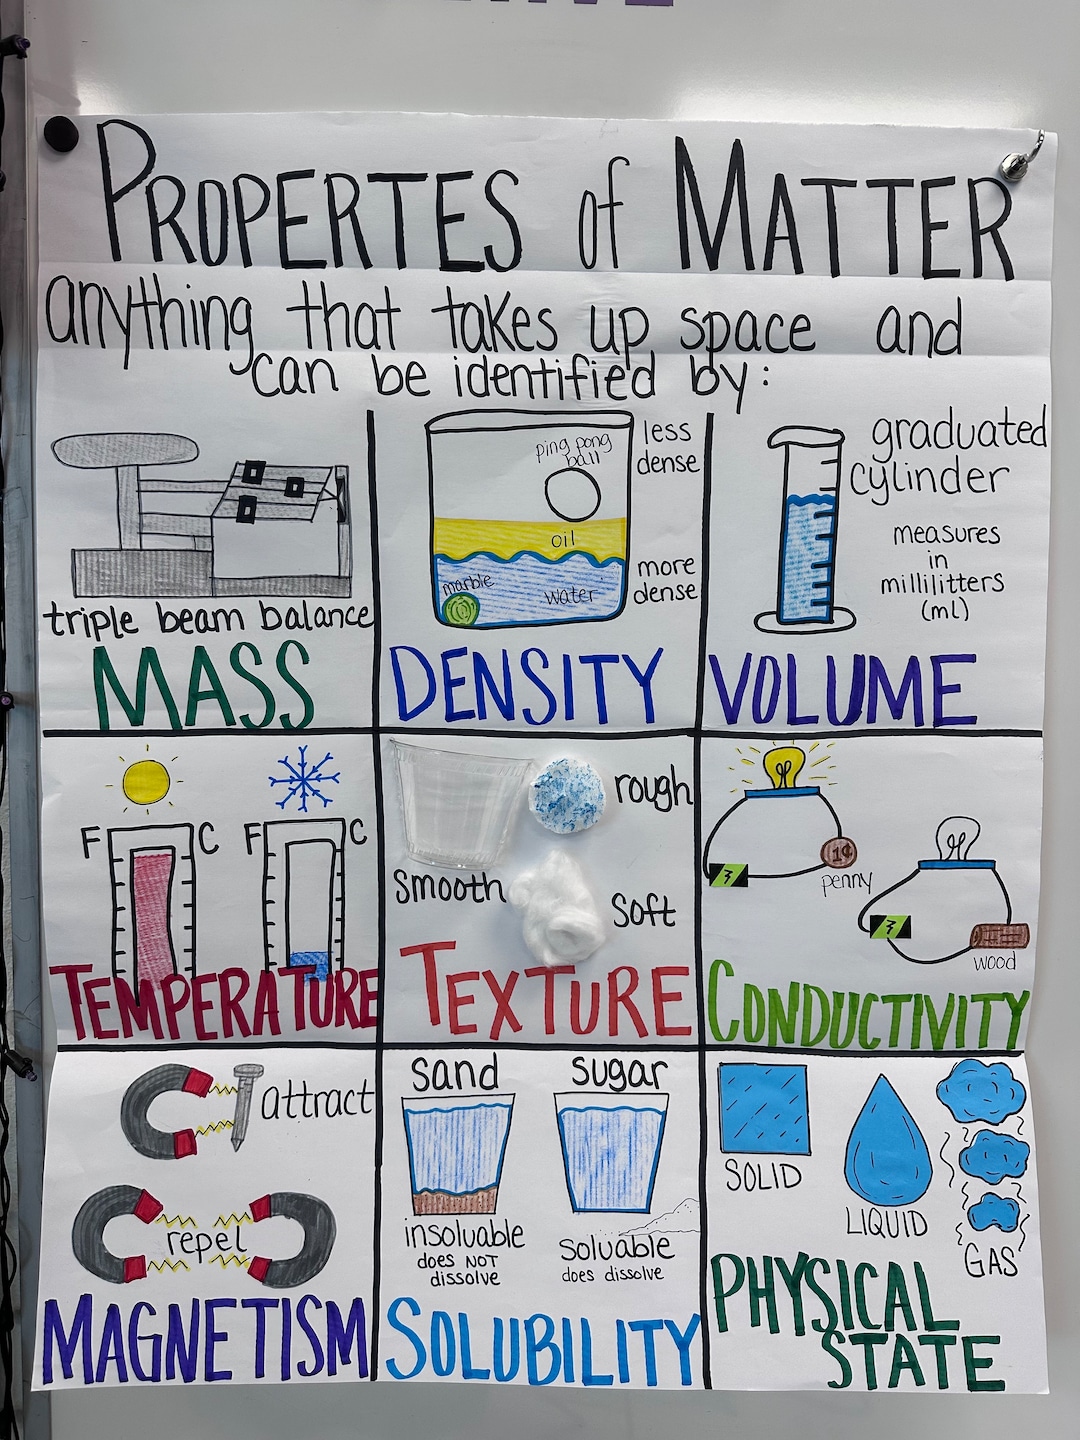 PROPERTES of MATTER
anything that takes up space and
can be identified by:
triple beam balance
MASS
ping pong
ball
less
dense
oil
marble
water
more
dense
DENSITY
graduated
cylinder
measures
in
millilitters
(ml)
VOLUME
F C F C
TEMPERATURE
rough
smooth
soft
TEXTURE
1¢
penny
wood
CONDUCTIVITY
attract
repel
MAGNETISM
sand
sugar
insoluable
does NOT
dissolve
soluable
does dissolve
SOLUBILITY
SOLID
LIQUID
GAS
PHYSICAL
STATE